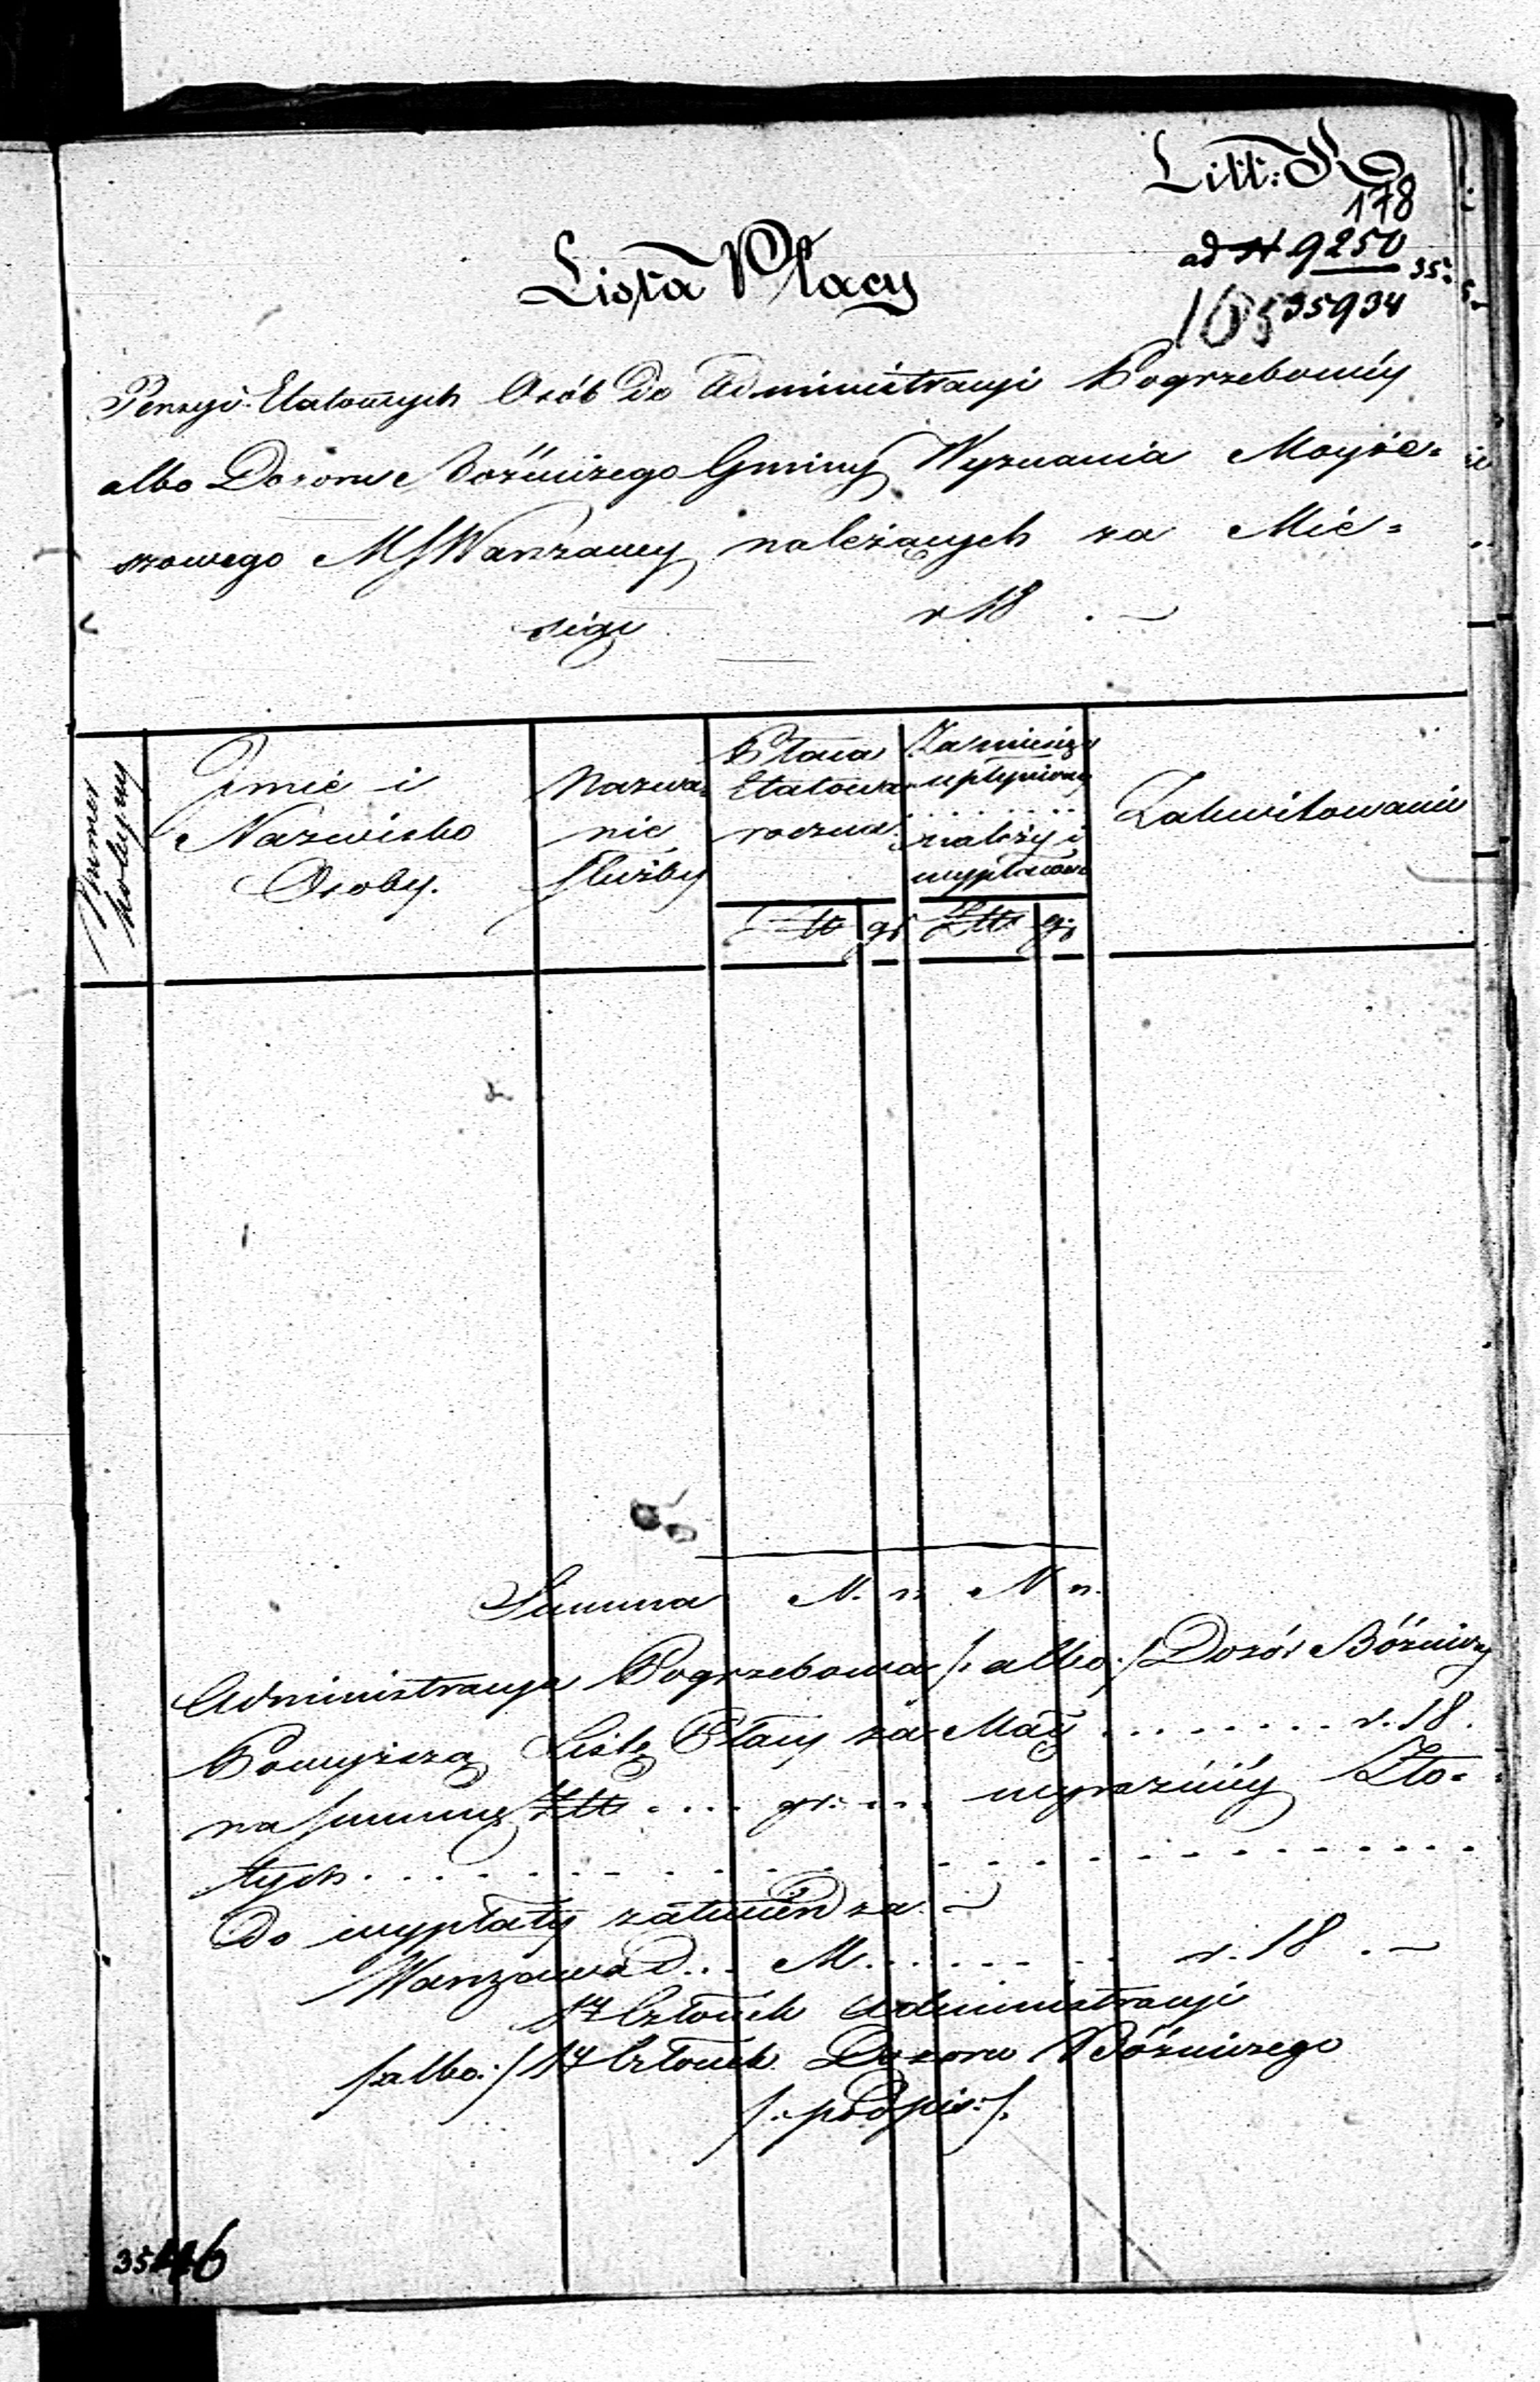 Litt: K
178
ad N 9250
35934
Lista Płacy
Pensyi Etatowych Osób do Administracyi Pogrzebowéy
albo Dozoru Bóżniczego Gminy Wyznania Moyże=
szowego M S Warszawy należących za Mie=
siąc r 18 . —
Numer kolejny
Imie i Nazwisko Osoby.
Nazwa= nie Służby
Płaca Etatowa roczna
Za miesiąc upłyniony . . . . . należy i wypłacono
Zakwitowanie
Złł gr Złł gr
Summa N. n. N n.
Administracya Pogrzebowa /: albo :/ Dozór Bóżniczy
Powyższą Listę Płacy za Mc . . . . . . . . r. 18 .
na summę Złł . . . . gr: . . . wyraźniéy Zło=
tych . . . . . . . . . . . . . . . . . . . .
do wypłaty zatwierdza. —
Warszawa d . . . M . . . . . . . r. 18 . —
Członek Administracyi
/:albo:/ Członek Dozoru Bóżniczego
/: podpis :/